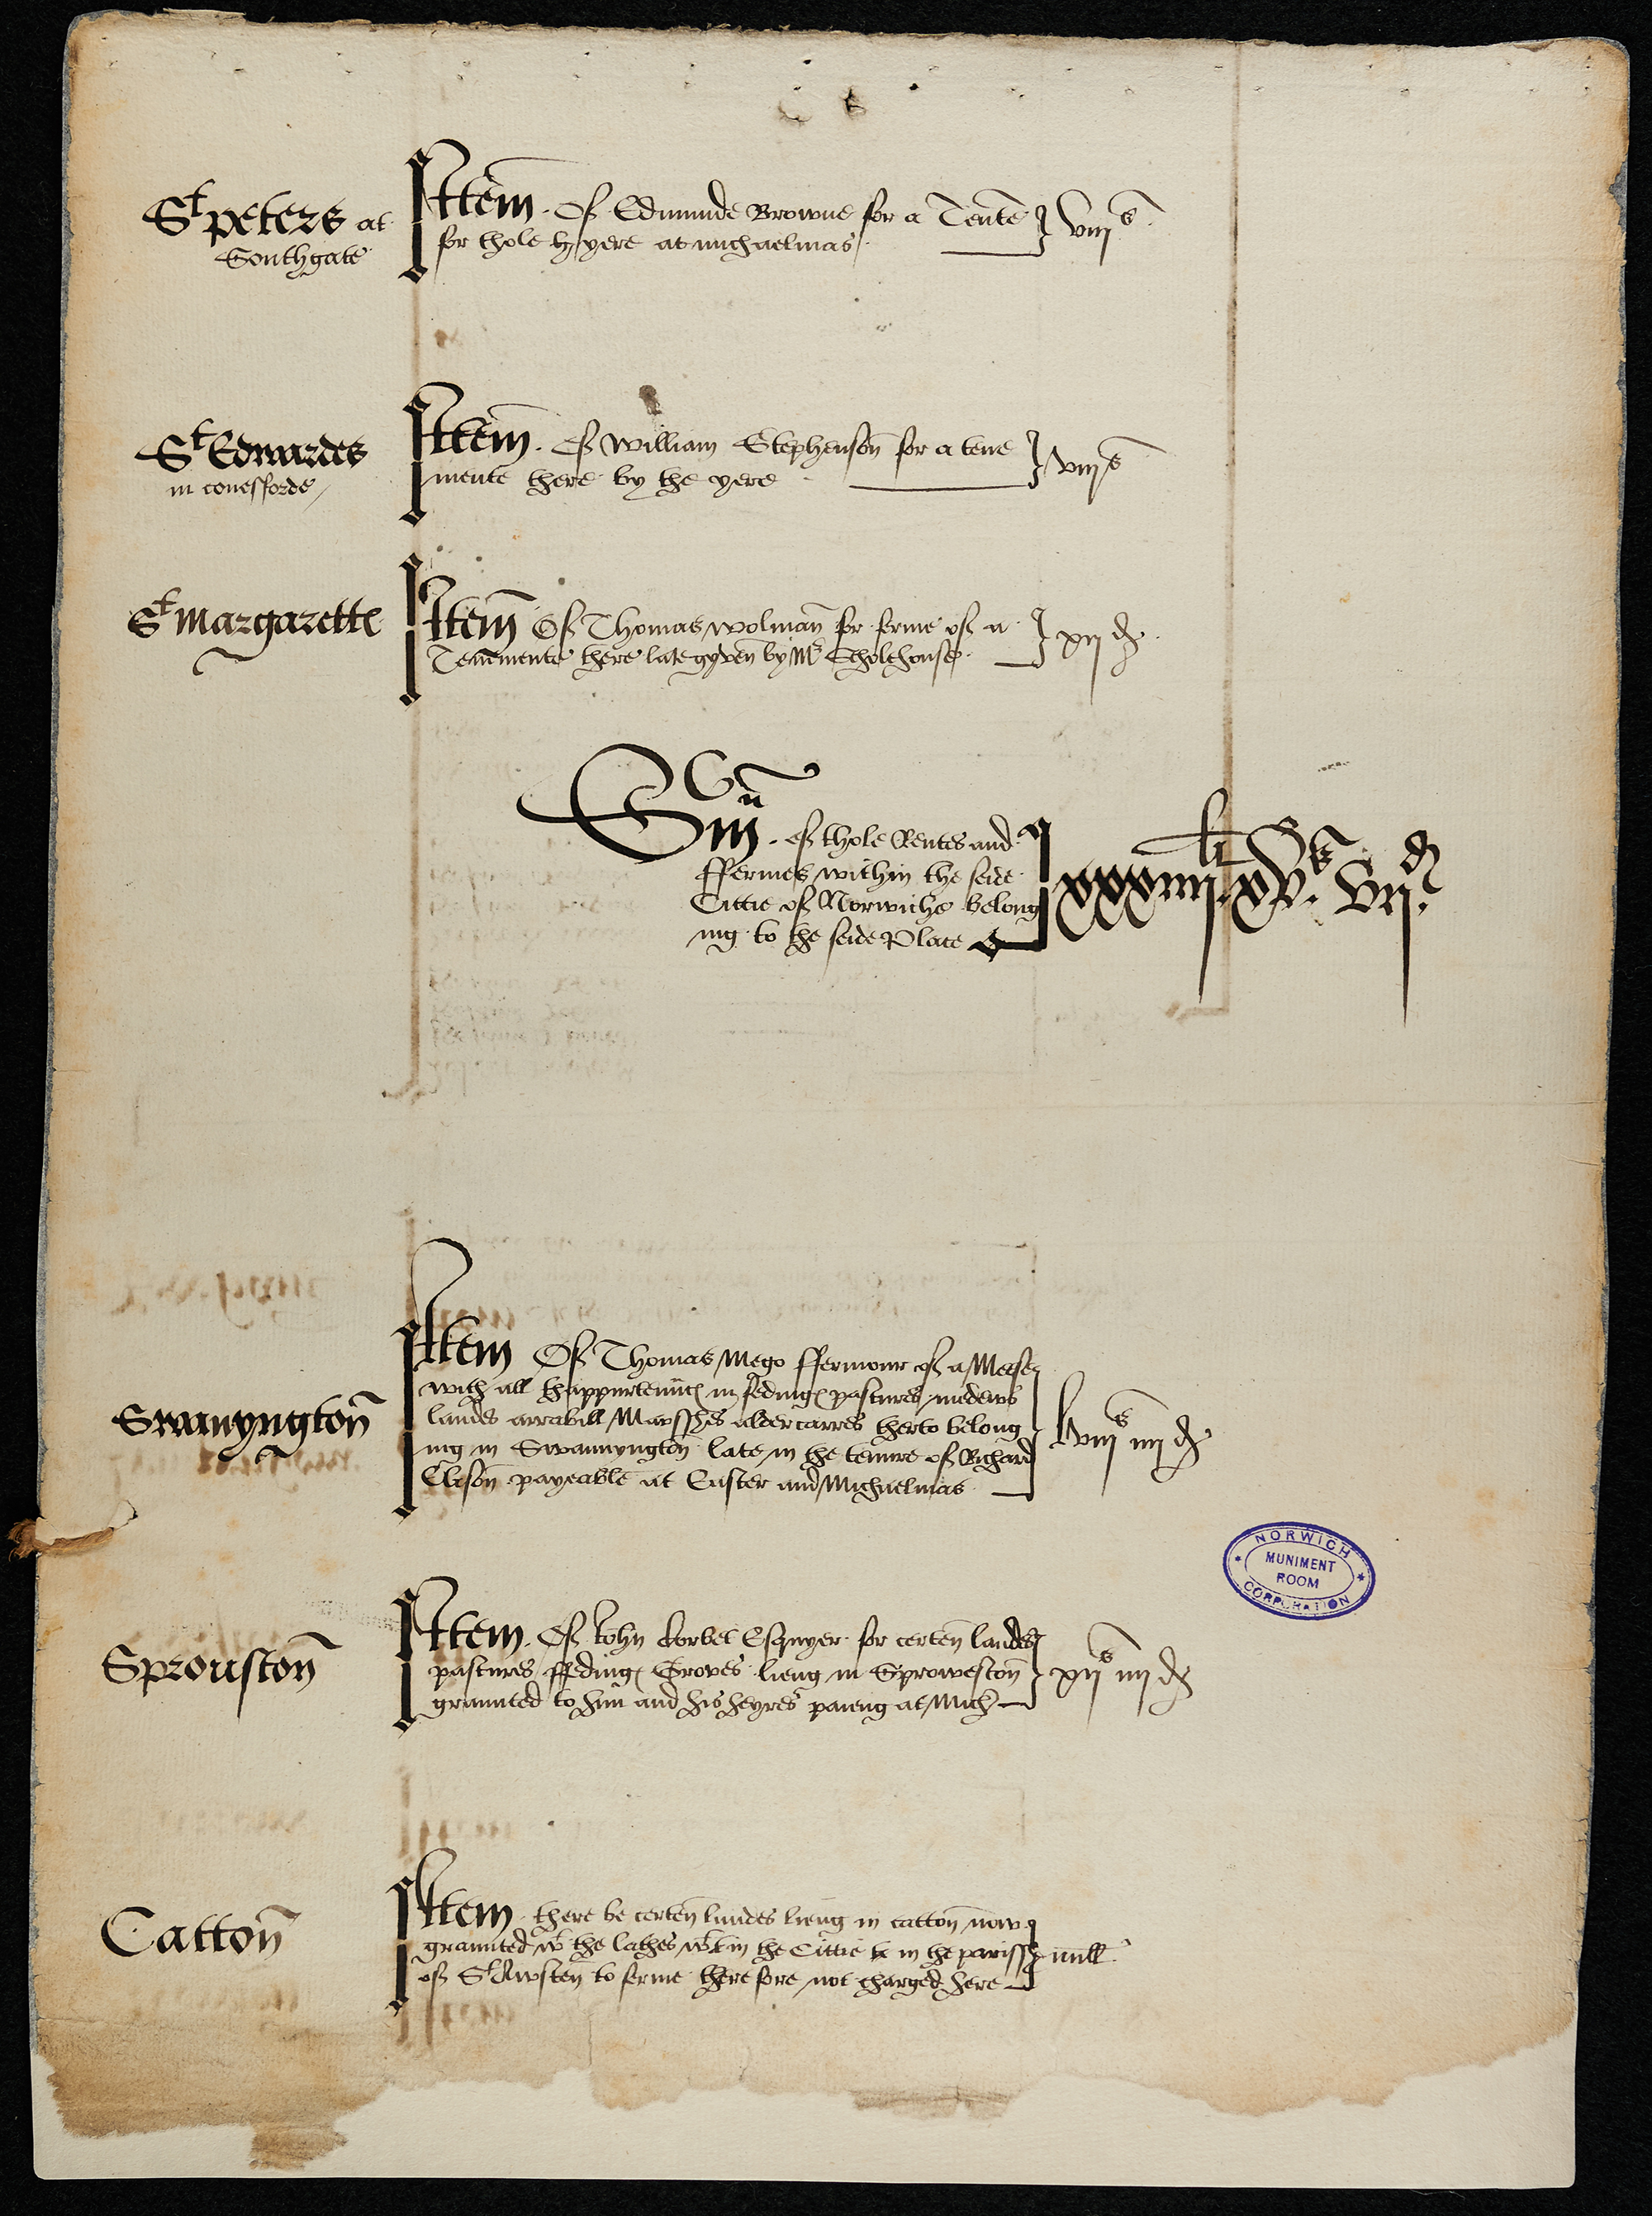 St peters at
Southgate
Item. Of Edmunde Browne for a Tente
for thole hy yere at michaelmas
viijs
St Edwardes
in conesforde
Item. Of William Stephenson for a tene
mente there by the yere
viijs
St margarette
Item Of Thomas wolman for ferme of a
Tenemente there late gyven by Mr
xijd
Sm. of thole Rentes and
ffermes within the seide
Cittie of Norwiche belong
ing to the seide Place
Swanyngton
Item Of Thomas Mego ffermour of a Mese
with all thappurtenunces in fedinges pastures medews
landes arrabill Marsshes aldercarres therto belong
ing in Swannyngton late in the tenure of Richard
Cleson payeable at Ester and Michaelmas
lviijs iiijd
Sprouston
Item. Of John Corbet Esquyer for certen landes
pastures ffedinges Groves lieng in Sproweston
graunted to him and his heyres paieng at Mich
xijs iiijd
Catton
Item there be certen landes lieng in catton now
graunted wt the lathes wtin the Cittie & in the parissh
of St Awsten to ferme there fore not charged here
null
NORWICH
CORPORATION
MUNIMENT
ROOM